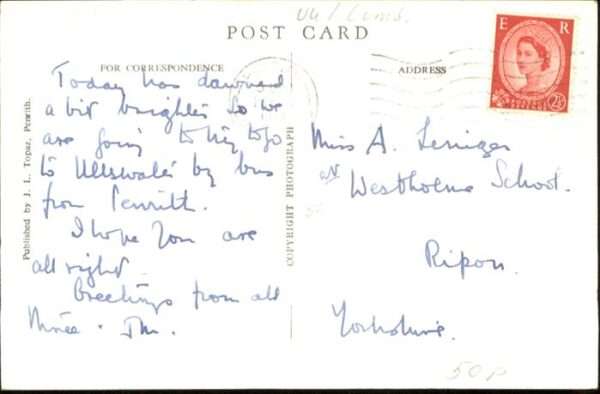 UK / Cumb.
POST CARD
FOR CORRESPONDENCE
ADDRESS
E R
2½
Today has dawned
a bit brighter so we
are going to try to go
to Ullswater by bus
from Penrith.
I hope you are
all right.
Greetings from all
three. Jm.
Published by J. L. Topaz, Penrith.
COPYRIGHT PHOTOGRAPH
Miss A.
at Westholme School.
Ripon.
Yorkshire.
50p